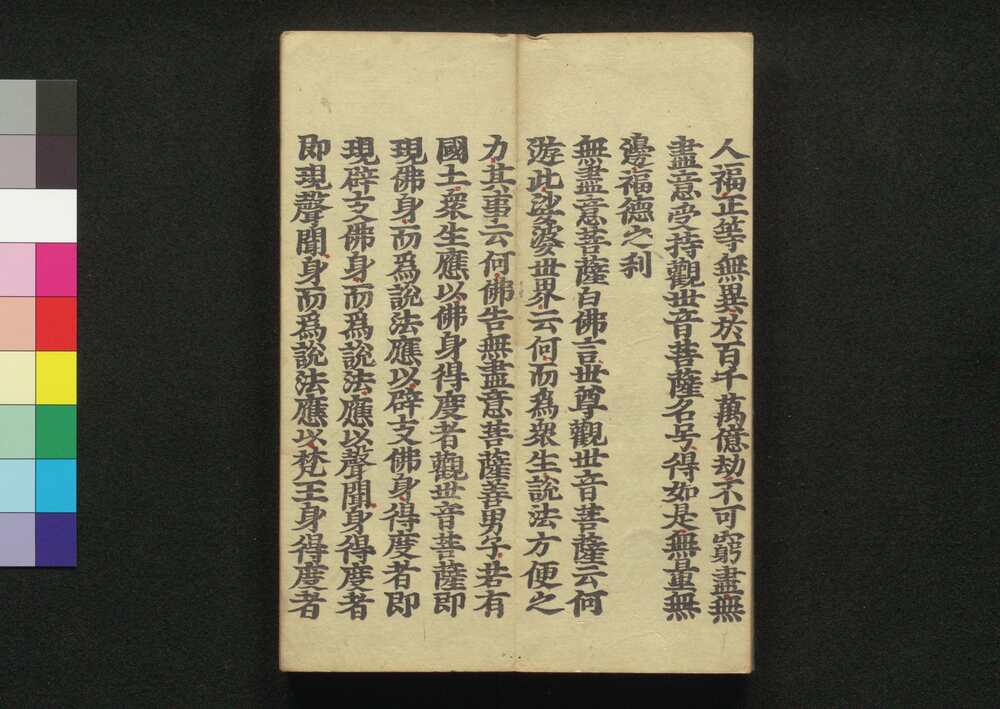 人福正等無異於百千萬億劫不可窮盡無
盡意受持觀世音菩薩名号得如是無量無
邊福德之利
無盡意菩薩白佛言世尊觀世音菩薩云何
遊此娑婆世界云何而為衆生說法方便之
力其事云何佛告無盡意菩薩善男子若有
國土衆生應以佛身得度者觀世音菩薩即
現佛身而爲說法應以辟支佛身得度者即
現辟支佛身而爲說法應以聲聞身得度者
即現聲聞身而爲說法應以梵王身得度者